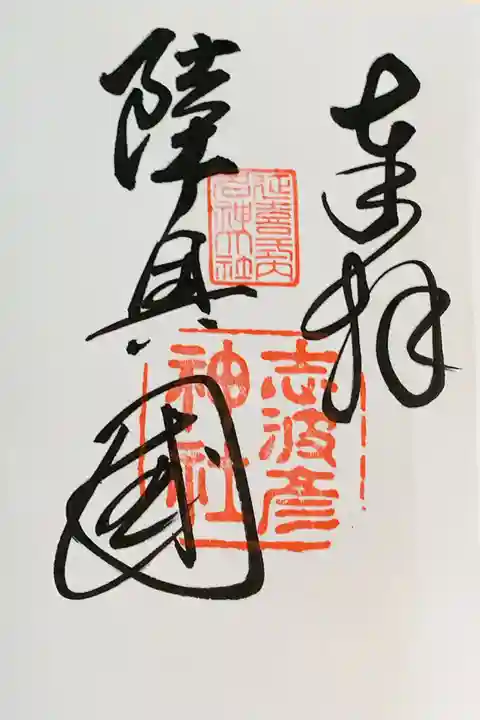 奉拝
延喜式内
名神大社
志波彦
神社
陸奥國